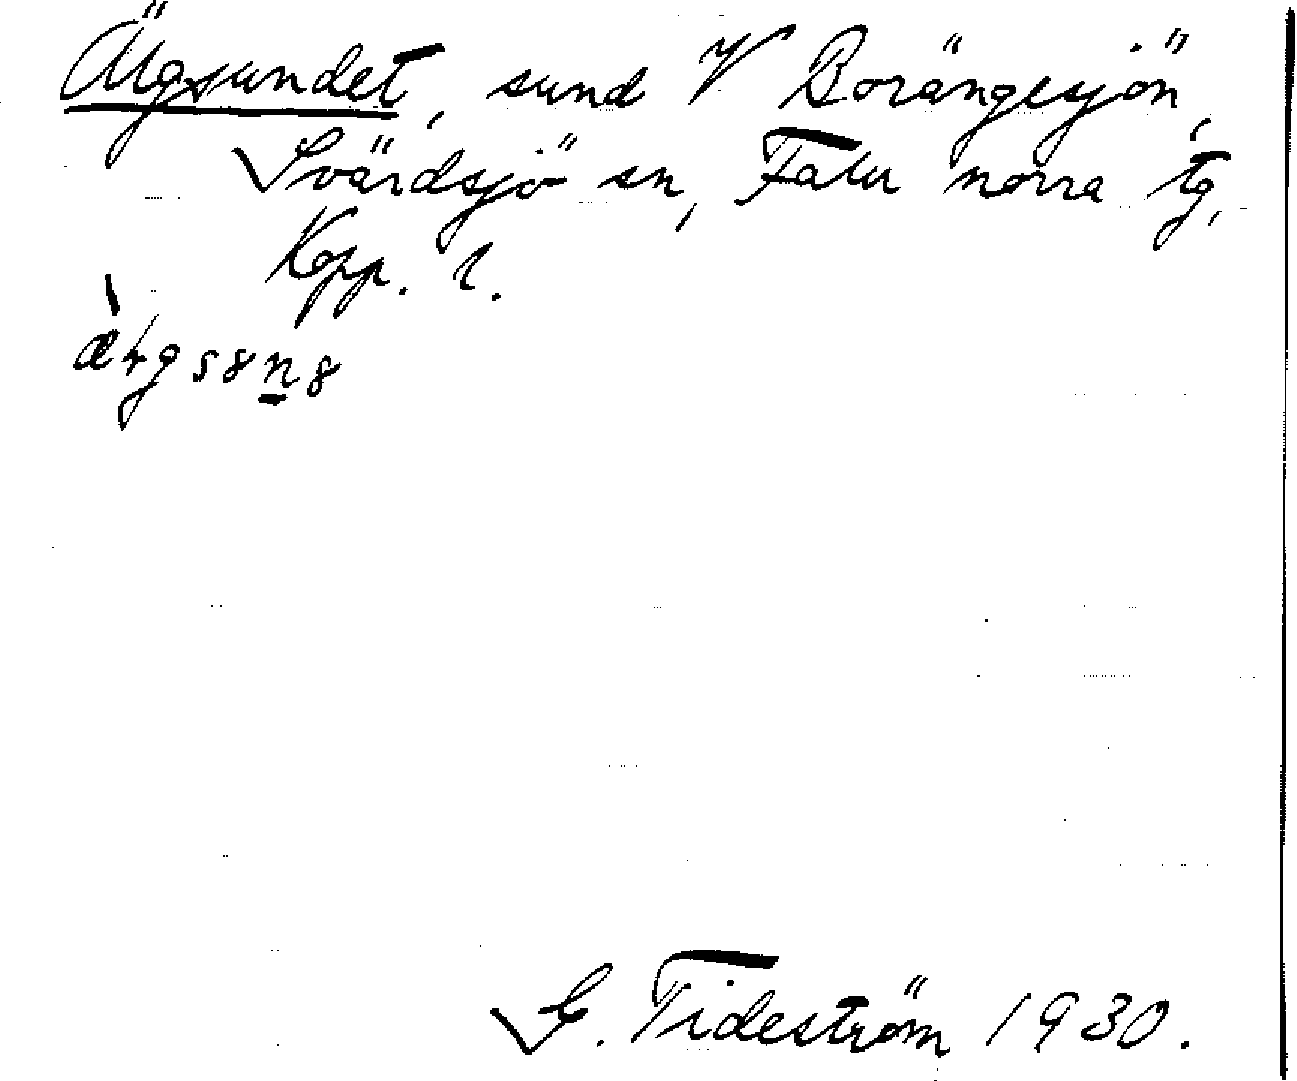 Älgsundet, sund V Borängesjön,
Svärdsjö sn, Falu norra tg,
Kopp. l.
G. Tideström 1930.